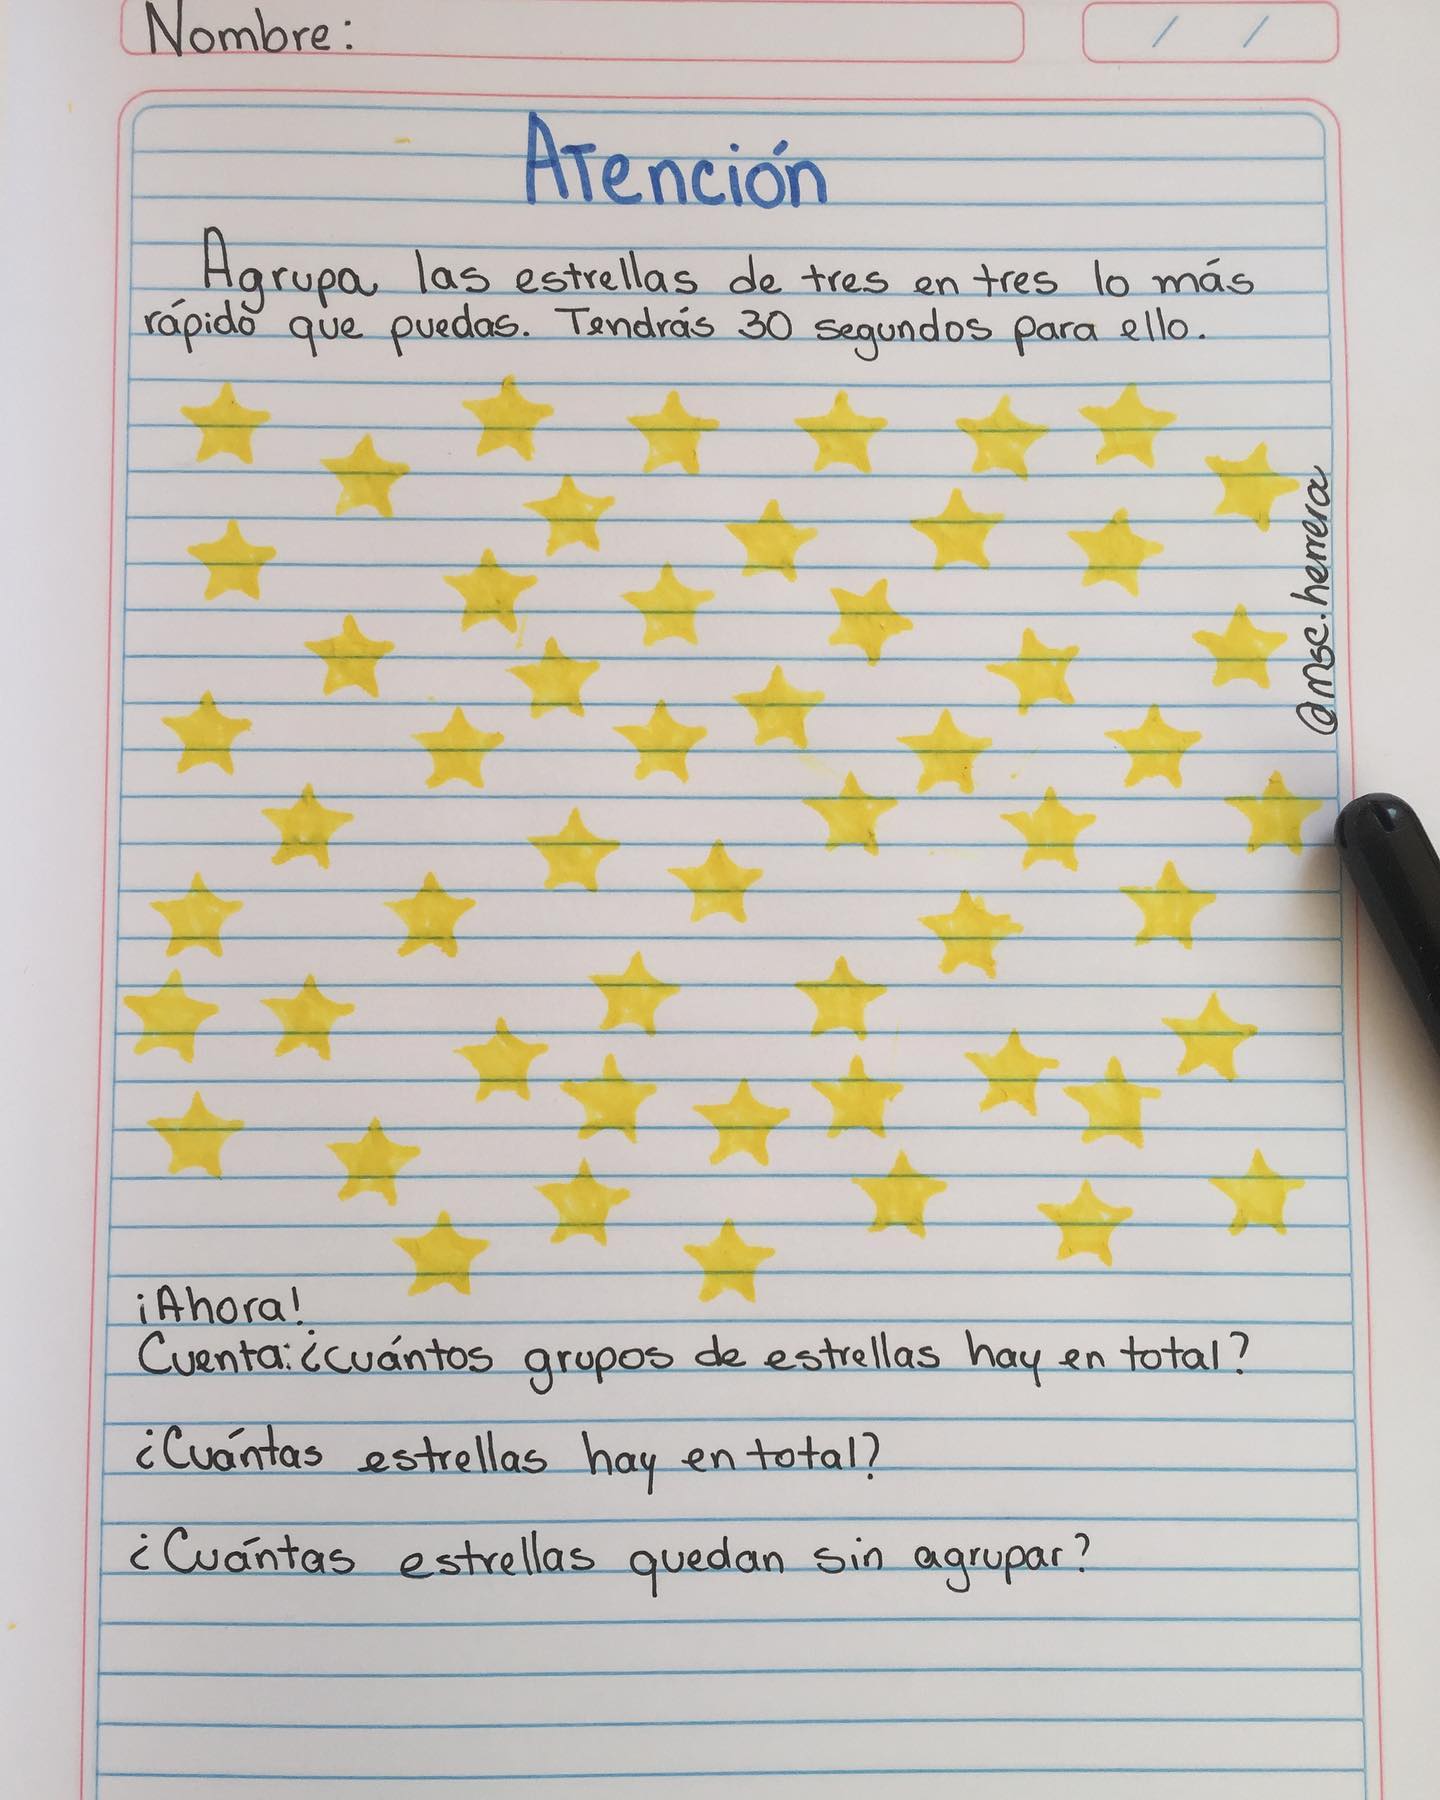 Nombre:
/ /
Atención
Agrupa las estrellas de tres en tres lo más
rápido que puedas. Tendrás 30 segundos para ello.
@msc.herrera
¡Ahora!
Cuenta: ¿cuántos grupos de estrellas hay en total?
¿Cuántas estrellas hay en total?
¿Cuántas estrellas quedan sin agrupar?